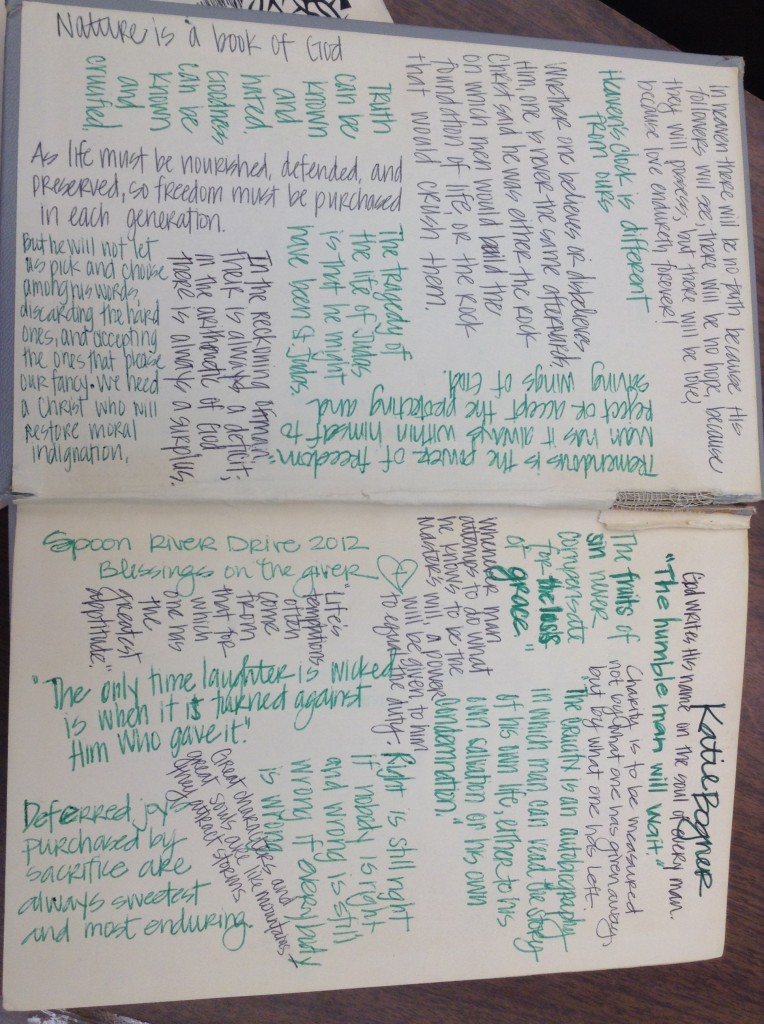 Nature is a book of God
Truth
can be
known
and
hated.
Goodness
can be
known
and
crucified.
As life must be nourished, defended, and
preserved, so freedom must be purchased
in each generation.
But he will not let
us pick and choose
among his words,
discarding the hard
ones, and accepting
the ones that please
our fancy. We need
a Christ who will
restore moral
indignation.
In the reckoning of man,
their is always a deficit;
in the arithmetic of God
there is always a surplus.
The tragedy of
the life of Judas
is that he might
have been St. Judas.
In heaven there will be no faith because His
followers will see; there will be no hope, because
they will possess; but there will be love,
because love endureth forever!
Heaven's clock is different
from ours
Whether one believes or disbelieves
Him, one is never the same afterwards.
Christ said he was either the rock
on which men would build the
foundation of life, or the rock
that would crush them.
Tremendous is the power of freedom"
Man has it always within himself to
reject or accept the protecting and
saving wings of God.
Spoon River Drive 2012
Blessings on the giver
"Life's
temptations
often
come
from
that for
which
one has
the
greatest
apptitude."
"The only time laughter is wicked
is when it is turned against
Him who gave it."
Deferred joy
purchased by
sacrifice are
always sweetest
and most enduring.
Great characters and
great souls are like mountains +
they attract storms
Right is still right
if nobody is right
and wrong is still
wrong if everybody
is wrong.
Whenever man
attempts to do what
he knows to be the
Master's will, a power
will be given to him
to equal the duty.
The fruits of
sin never
compensate
for the loss
of grace."
Katie Bogner
God writes his name on the soul of every man.
"The humble man will wait."
Charity is to be measured
not by what one has given away,
but by what one has left.
"The crucifix is an autobiography
in which man can read the story
of his own life, either to his
own salvation or his own
condemnation."